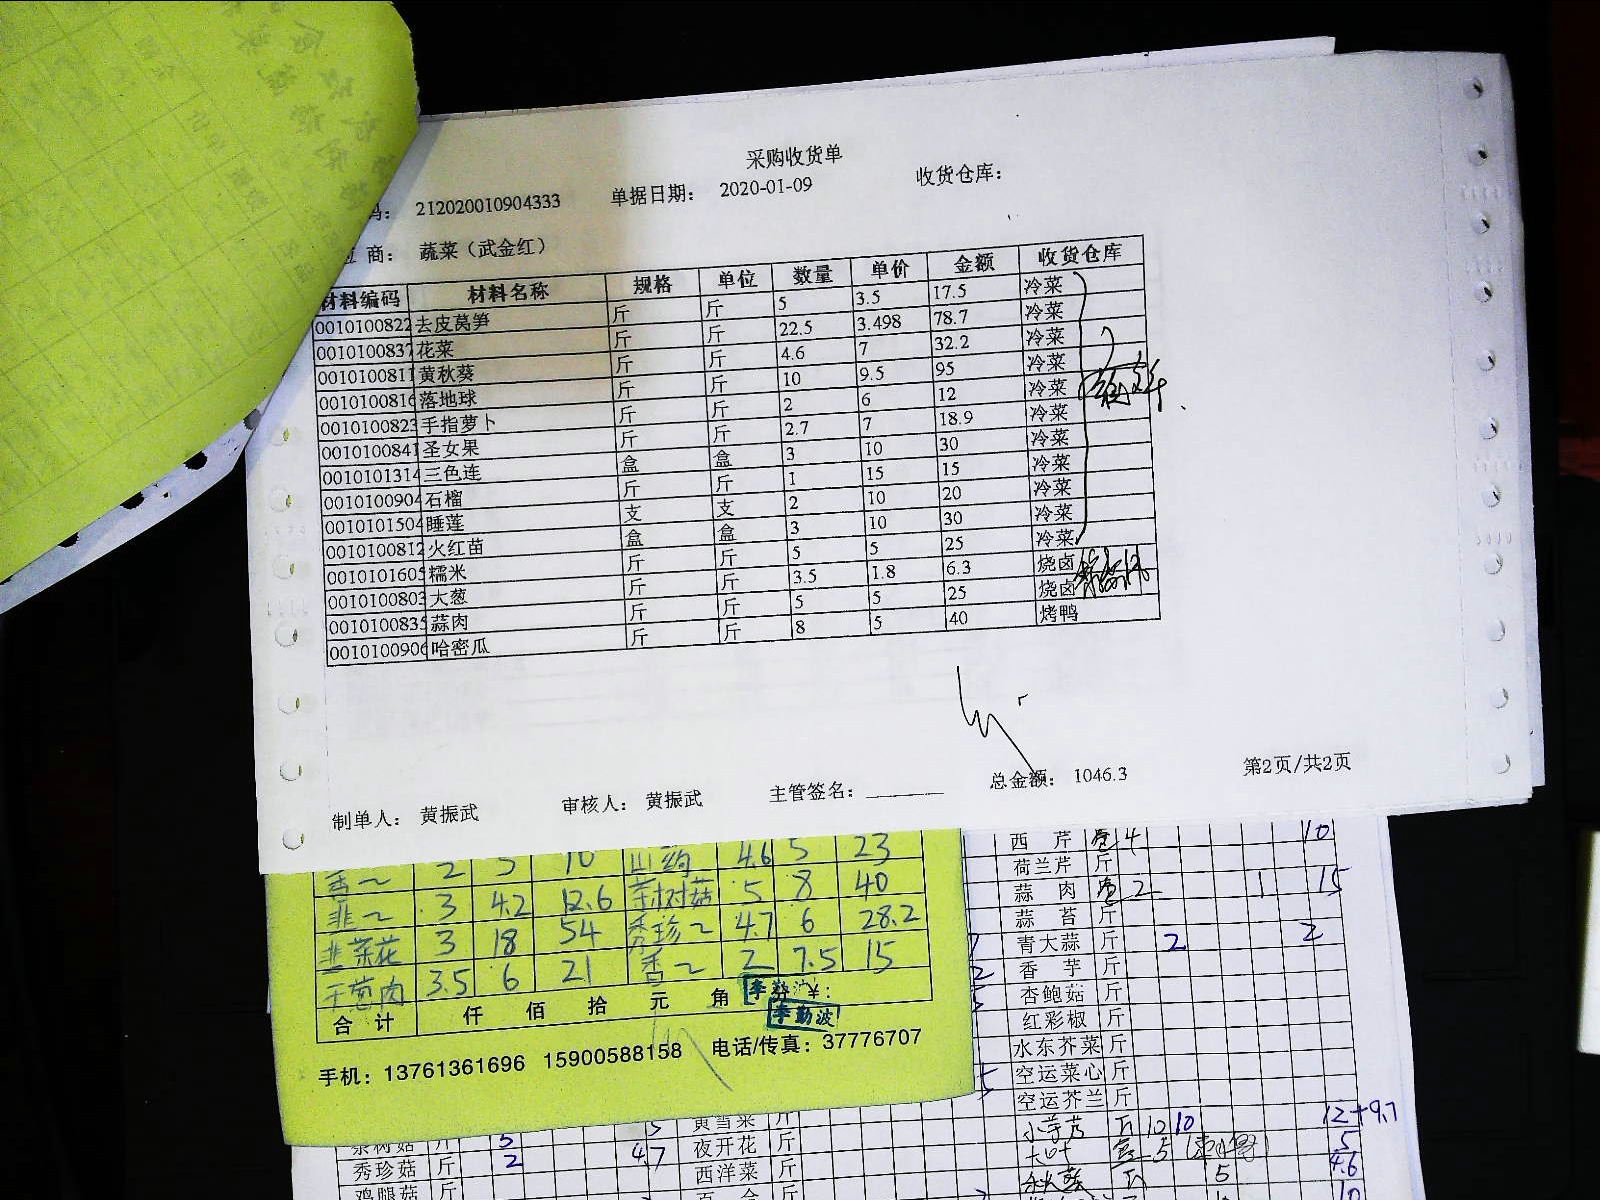 采购收货单
码： 212020010904333 单据日期： 2020-01-09 收货仓库：
应 商： 蔬菜（武金红）
材料编码 材料名称 规格 单位 数量 单价 金额 收货仓库
0010100822 去皮莴笋 斤 斤 5 3.5 17.5 冷菜
0010100837 花菜 斤 斤 22.5 3.498 78.7 冷菜
0010100811 黄秋葵 斤 斤 4.6 7 32.2 冷菜
0010100816 落地球 斤 斤 10 9.5 95 冷菜
0010100823 手指萝卜 斤 斤 2 6 12 冷菜
0010100841 圣女果 斤 斤 2.7 7 18.9 冷菜
0010101314 三色连 盒 盒 3 10 30 冷菜
0010100904 石榴 斤 斤 1 15 15 冷菜
0010101504 睡莲 支 支 2 10 20 冷菜
0010100812 火红苗 盒 盒 3 10 30 冷菜
0010101605 糯米 斤 斤 5 5 25 冷菜
0010100803 大葱 斤 斤 3.5 1.8 6.3 烧卤
0010100835 蒜肉 斤 斤 5 5 25 烧卤
0010100906 哈密瓜 斤 斤 8 5 40 烤鸭
总金额： 1046.3 第2页/共2页
制单人： 黄振武 审核人： 黄振武 主管签名：
2 5 10 山药 4.6 5 23
韭~ 3 4.2 12.6 茶树菇 5 8 40
韭菜花 3 18 54 秀珍~ 4.7 6 28.2
干葱肉 3.5 6 21 香~ 2 7.5 15
合 计 仟 佰 拾 元 角 分 ￥：
李勤波
手机：13761361696 15900588158 电话/传真：37776707
西 芹 4 10
荷兰芹 斤
蒜 肉 2 1 15
蒜 苔 斤
青大蒜 斤 2 2
香 芋 斤
杏鲍菇 斤
红彩椒 斤
水东芥菜 斤
空运菜心 斤
空运芥兰 斤
斤 10 10 12+9.7
茶树菇 斤 5 5 黄当菜 斤
5 5
秀珍菇 斤 2 4.7 夜开花 斤
5 4.6
鸡腿菇 斤 西洋菜 斤
10
百 合 斤